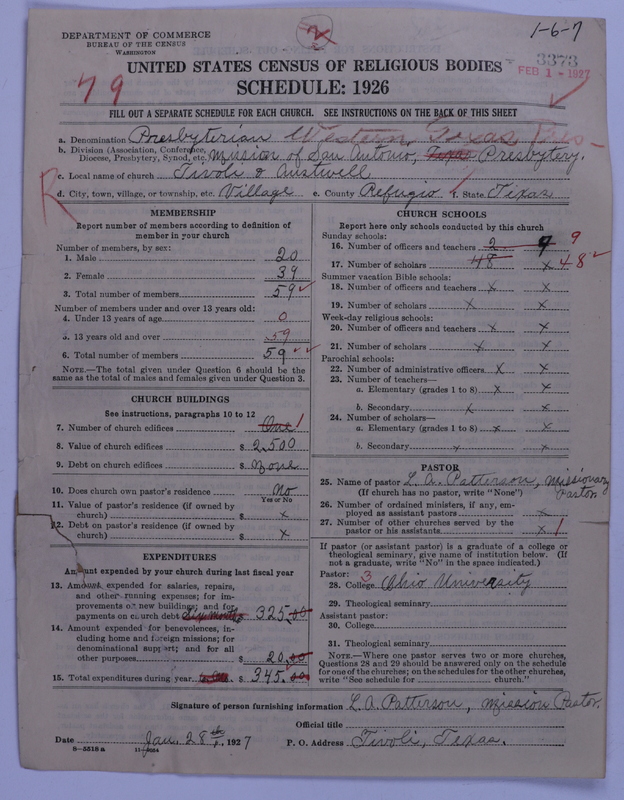 2
1-6-7
DEPARTMENT OF COMMERCE
BUREAU OF THE CENSUS
WASHINGTON
3373
FEB 1 - 1927
UNITED STATES CENSUS OF RELIGIOUS BODIES
79
SCHEDULE: 1926
FILL OUT A SEPARATE SCHEDULE FOR EACH CHURCH. SEE INSTRUCTIONS ON THE BACK OF THIS SHEET
a. Denomination Presbyterian Western Texas Pres-
b. Division (Association, Conference,
Diocese, Presbytery, Synod, etc.) Mission of San Antonio, Texas Presbytery.
c. Local name of church Tivoli & Austwell
R
d. City, town, village, or township, etc. Village e. County Refugio f. State Texas
MEMBERSHIP
Report number of members according to definition of
member in your church
Number of members, by sex:
1. Male 20
2. Female 39
3. Total number of members 59
Number of members under and over 13 years old:
4. Under 13 years of age 0
5. 13 years old and over 59
6. Total number of members 59
NOTE.—The total given under Question 6 should be the
same as the total of males and females given under Question 3.
CHURCH BUILDINGS
See instructions, paragraphs 10 to 12
7. Number of church edifices One 1
8. Value of church edifices $ 2,500
9. Debt on church edifices $ None
10. Does church own pastor's residence No
Yes or No
11. Value of pastor's residence (if owned by
church) $ x
12. Debt on pastor's residence (if owned by
church) $ x
EXPENDITURES
Amount expended by your church during last fiscal year
13. Amount expended for salaries, repairs,
and other running expenses; for im-
provements or new buildings; and for
payments on church debt $ 325.00
14. Amount expended for benevolences, in-
cluding home and foreign missions; for
denominational support; and for all
other purposes $ 20.00
15. Total expenditures during year $ 345.00
CHURCH SCHOOLS
Report here only schools conducted by this church
Sunday schools:
16. Number of officers and teachers 2 9 9
17. Number of scholars 48 x 48
Summer vacation Bible schools:
18. Number of officers and teachers x x
19. Number of scholars x x
Week-day religious schools:
20. Number of officers and teachers x x
21. Number of scholars x x
Parochial schools:
22. Number of administrative officers x x
23. Number of teachers—
a. Elementary (grades 1 to 8) x x
b. Secondary x x
24. Number of scholars—
a. Elementary (grades 1 to 8) x x
b. Secondary x x
PASTOR
25. Name of pastor L. A. Patterson, Missionary
Pastor
(If church has no pastor, write "None")
26. Number of ordained ministers, if any, em-
ployed as assistant pastors x
27. Number of other churches served by the
pastor or his assistants x 1
If pastor (or assistant pastor) is a graduate of a college or
theological seminary, give name of institution below. (If
not a graduate, write "No" in the space indicated.)
Pastor: 3
28. College Ohio University
29. Theological seminary
Assistant pastor:
30. College
31. Theological seminary
NOTE.—Where one pastor serves two or more churches,
Questions 28 and 29 should be answered only on the schedule
for one of the churches; on the schedules for the other churches,
write "See schedule for church."
Signature of person furnishing information L. A. Patterson, Mission Pastor.
Official title
Date Jan. 28th, 1927 P. O. Address Tivoli, Texas.
8-5518 a